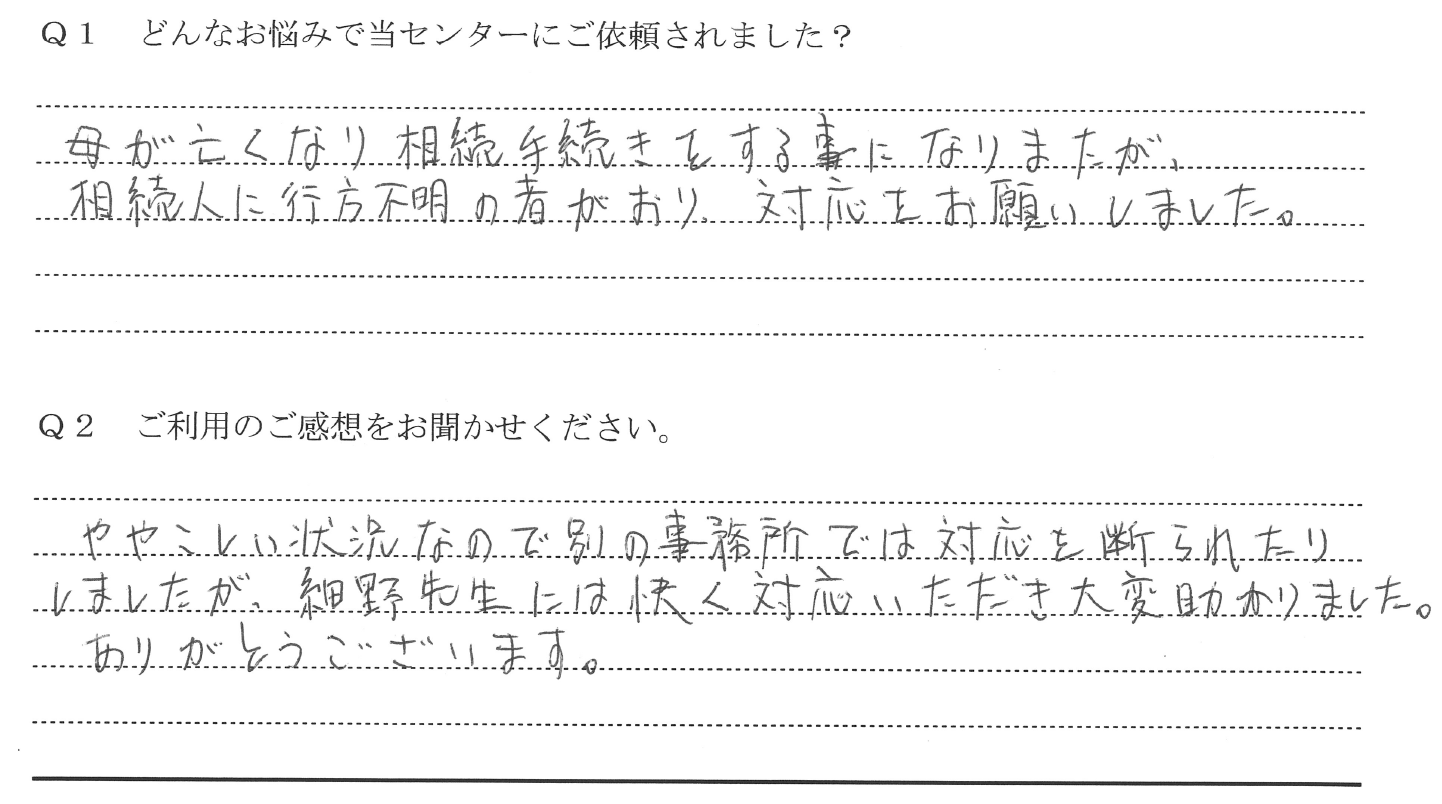 Q1 どんなお悩みで当センターにご依頼されました?
母が亡くなり相続手続きをする事になりまたが、
相続人に行方不明の者がおり、対応をお願いしました。
Q2 ご利用のご感想をお聞かせください。
ややこしい状況なので別の事務所では対応を断られたり
しましたが、細野先生には快く対応いただき大変助かりました。
ありがとうございます。